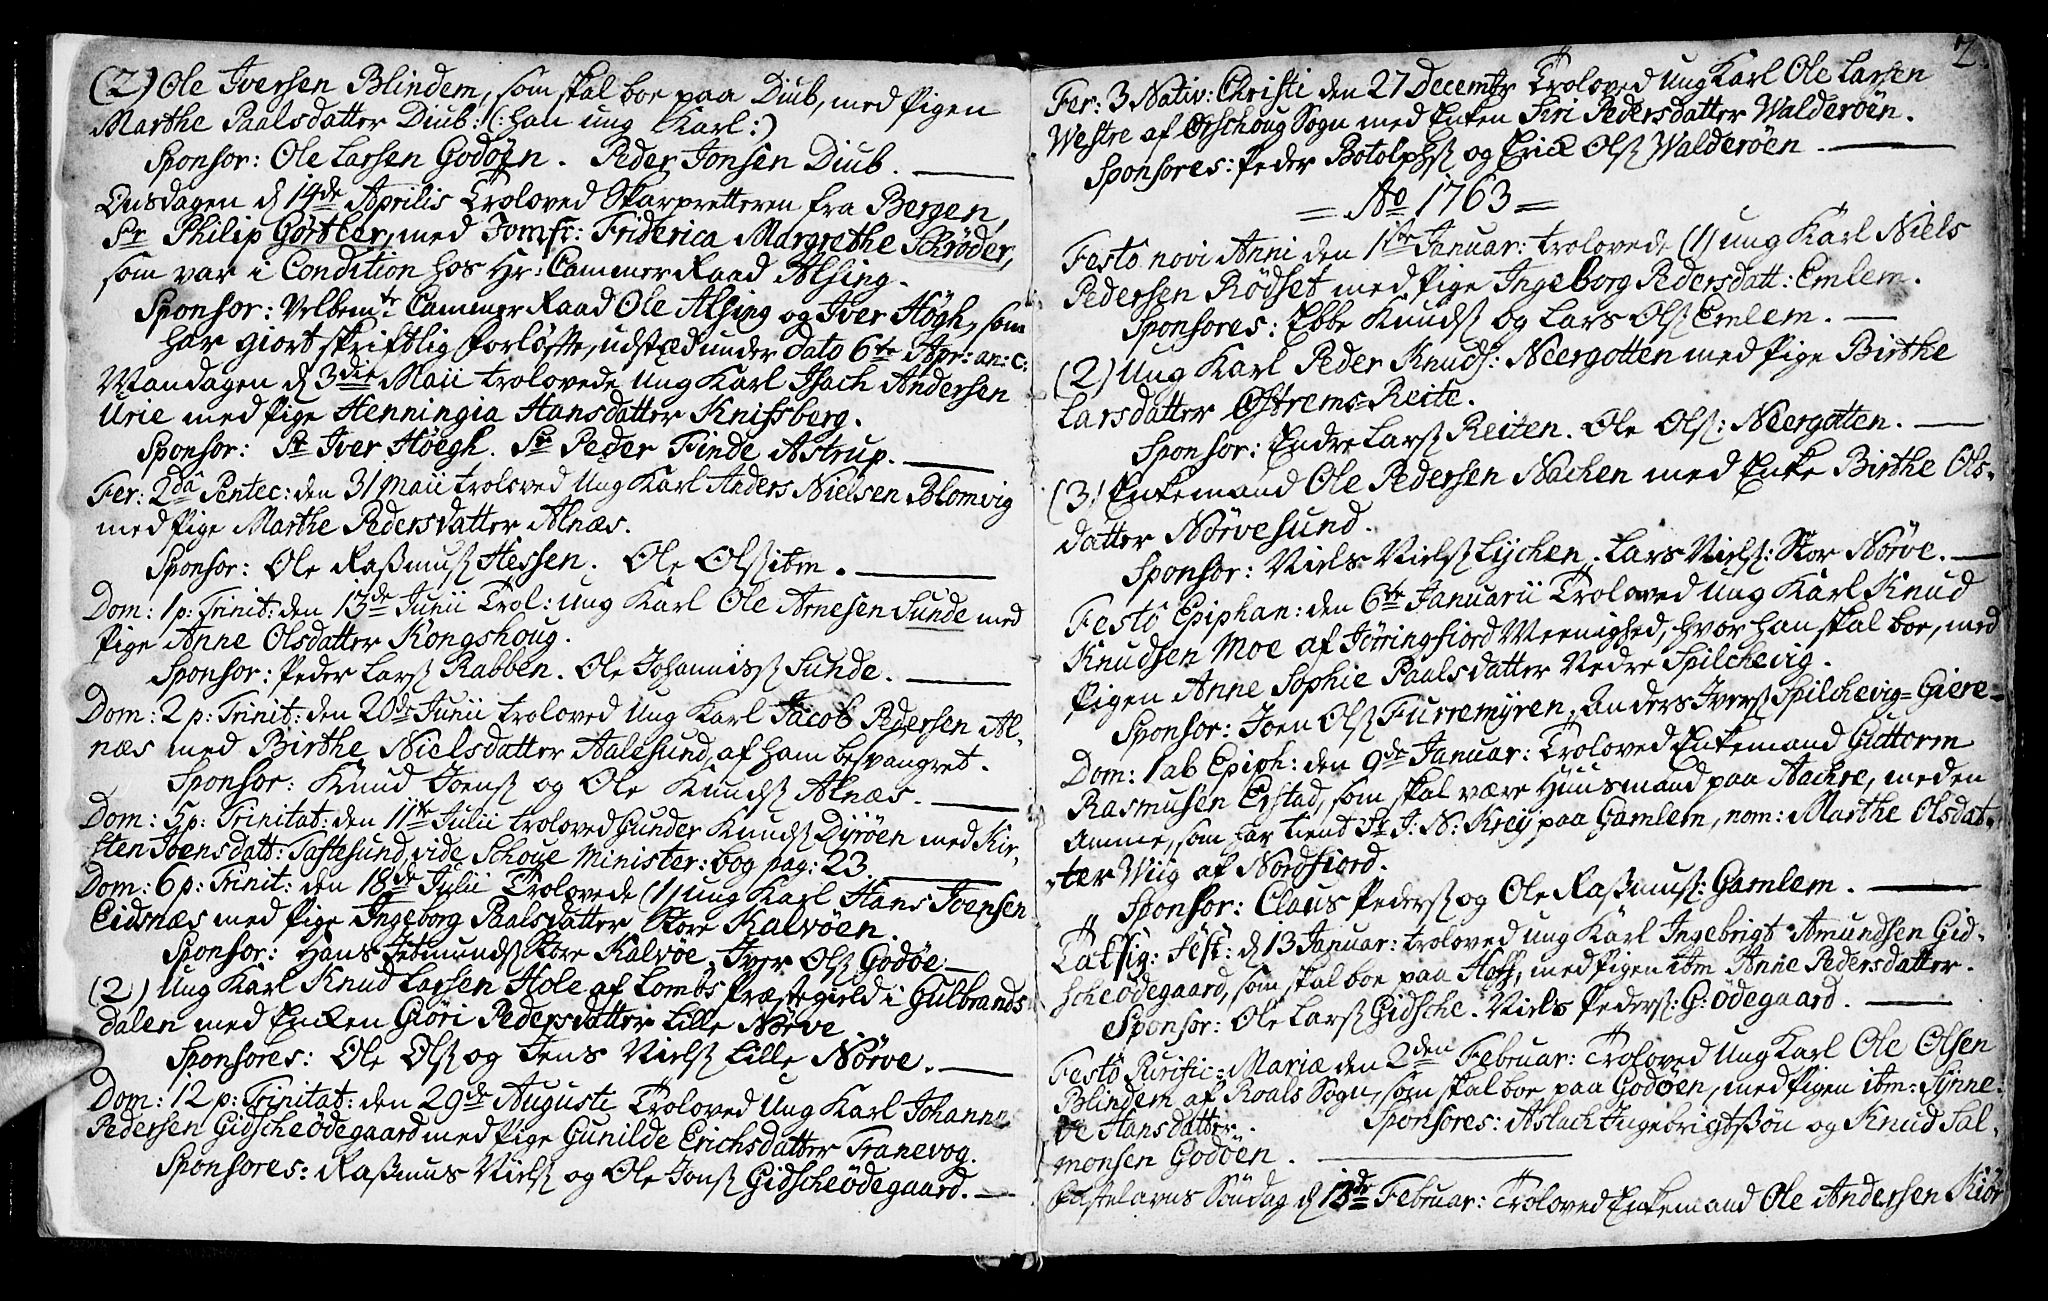 (2) Ole Iversen Blindem, som skal boe paa Diub, med Pigen
Marthe Paalsdatter Diub: (: han ung Karl:)
Sponsor: Ole Larsen Godøen. Peder Jonsen Diub.
Onsdagen d 14de Aprilis Troloved Skarpretteren fra Bergen,
Sr Philip Gørtler, med Jomfr: Friderica Margrethe Schrøder,
som var i Condition hos Hr: Cammer Raad Alsing.
Sponsor: Velbemte Cammer Raad Ole Alsing og Iver Högh, som
har giort skriftlig forløfte, udstæd under dato 6te Apr: an: c:
Mandagen d 3die Maii trolovede Ung Karl Isach Andersen
Urie med Pige Henningia Hansdatter Knifsberg.
Sponsor: Sr Iver Höegh. Sr Peder Finde Astrup.
Fer: 2da Pentec: den 31 Maii troloved Ung Karl Anders Nielsen Blomvig
med Pige Marthe Pedersdatter Alnæs.
Sponsor: Ole Rasmusß Hessen. Ole Olsß ibm.
Dom: 1 p: Trinit: den 13de Junii Trol: ung Karl Ole Arnesen Sunde med
Pige Anne Olsdatter Kongshoug.
Sponsor: Peder Larsß Rabben. Ole Johannisß Sunde.
Dom: 2 p: Trinit: den 20de Junii troloved Ung Karl Jacob Pedersen Al-
næs med Birthe Nielsdatter Aalesund, af ham besvangret.
Sponsor: Knud Joensß og Ole Knudsß Alnæs.
Dom: 5 p: Trinitat: den 11te Julii troloved Gunder Knudsß Dyrøen med Kir-
sten Joensdatt: Taftesund, vide Schoue Minister: bog pag: 23.
Dom: 6 p: Trinit: den 18de Julii Trolovede (1) ung Karl Hans Joensen
Eidsnæs med Pige Ingeborg Paalsdatter Store Kalvøen.
Sponsor: Hans Jetmundsß Store Kalvøe. Iver Olsß Godøe
(2) Ung Karl Knud Larsen Hole af Lombs Præstegield i Gulbrands
dalen med Enken Giøri Pedersdatter Lille Nørve.
Sponsores: Ole Olsß og Jens Nielsß Lille Nørve.
Dom: 12 p: Trinitat: den 29de Augusti Troloved Ung Karl Johannes
Pedersen Gidscheødegaard med Pige Gunilde Erichsdatter Tranevog.
Sponsores: Rasmus Nielsß og Ole Jonsß Gidscheødegaard.
2
Fer: 3 Nativ: Christi den 27 Decembr Troloved Ung Karl Ole Larsen
Westre af Ørschoug Sogn med Enken Siri Pedersdatter Walderøen.
Sponsores: Peder Botolphsß og Erick Olsß Walderöen
= Ao 1763 =
Festo novi Anni den 1ste Januar: trolovede (1) ung Karl Niels
Pedersen Rödset med Pige Ingeborg Pedersdatt: Emlem.
Sponsores: Ebbe Knudsß og Lars Olsß Emlem.
(2) Ung Karl Peder Knuds: Neergotten med Pige Birthe
Larsdatter Østrems-Reite.
Sponsor: Endre Larsß Reiten. Ole Olsß: Neergotten.
(3) Enkemand Ole Pedersen Nachen med Enke Birthe Ols-
datter Nörvesund.
Sponsor: Niels Nielsß Lychen. Lars Nielsß: Stor Nörve.
Festo Epiphan: den 6te Januarii Troloved Ung Karl Knud
Knudsen Moe af Jørringfiord Meenighed, hvor han skal boe, med
Pigen Anne Sophie Paalsdatter Nedre Spilchevig.
Sponsor: Joen Olsß Furremyren. Anders Iversß Spilchevig=Giere-
Dom: 1 ab Epiph: den 9de Januar: Troloved Enkemand Guttorm
Rasmusen Erstad, som skal være Huusmand paa Aachre, med en
Amme, som har tient Sr J: N: Krey paa Gamlem, nom: Marthe Olsdat-
ter Wiig af Nordfiord.
Sponsor: Claus Pedersß og Ole Rasmusß: Gamlem.
Taksig: Fest: d 13 Januar: troloved ung Karl Ingebrigt Amundsen Gid-
scheødegaard, som skal boe paa Hoff, med Pigen ibm Anne Pedersdatter.
Sponsor: Ole Larsß Gidsche. Niels Pedersß: G: ødegaard.
Festo Purific: Mariæ den 2den Februar: Troloved Ung Karl Ole Olsen
Blindem af Roals Sogn, som skal boe paa Godøen, med Pigen ibm: Synne-
ve Hansdatter. Sponsores: Aslack Ingebrigtssøn og Knud Sal-
monsen Godöen.
Fastelavns Söndag d 13de Februar: Troloved Enkemand Ole Andersen Kiör